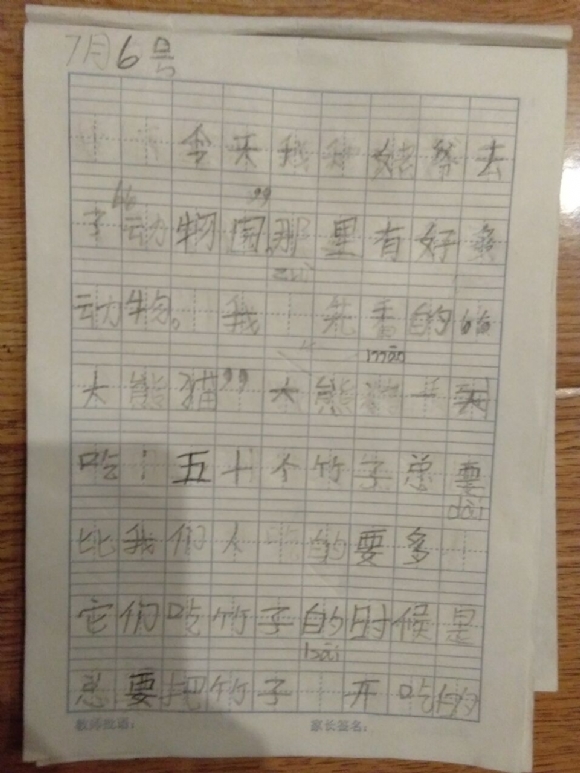 7月6号
今天我和姥爷去
了“动物园”,那里有好多
动物。我先看的“
māo
大熊猫”大熊猫一天
吃五十个竹子总要
比我们人吃的要多
它们吃竹子的时候是
bāi
总要把竹子开吃的
教师批语： 家长签名：